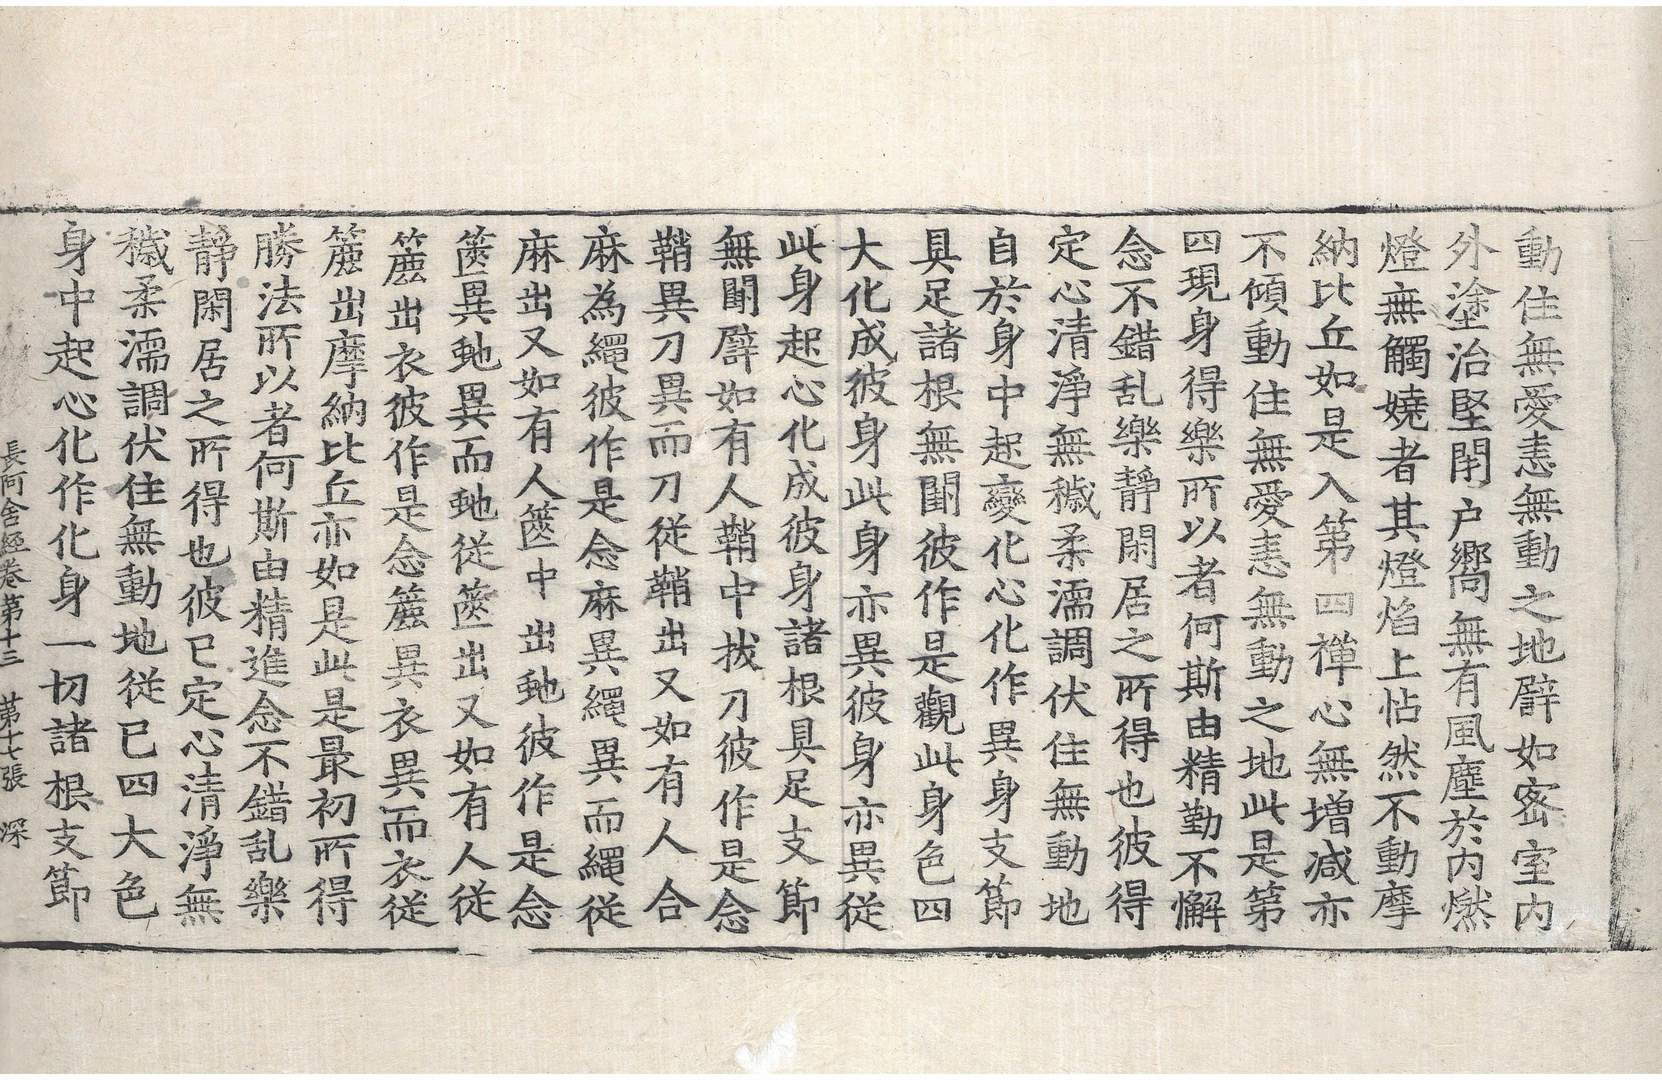 動住無愛恚無動之地譬如密室內
外塗治堅閉户嚮無有風塵於內燃
燈無觸嬈者其燈焰上怗然不動摩
納比丘如是入第四禪心無增減亦
不傾動住無愛恚無動之地此是第
四現身得樂所以者何斯由精勤不懈
念不錯乱樂靜閑居之所得也彼得
定心清淨無穢柔濡調伏住無動地
自於身中起變化心化作異身支節
具足諸根無闕彼作是觀此身色四
大化成彼身此身亦異彼身亦異從
此身起心化成彼身諸根具足支節
無闕譬如有人鞘中拔刀彼作是念
鞘異刀異而刀從鞘出又如有人合
麻為繩彼作是念麻異繩異而繩從
麻出又如有人篋中出虵彼作是念
篋異虵異而虵從篋出又如有人從
簏出衣彼作是念簏異衣異而衣從
簏出摩納比丘亦如是此是最初所得
勝法所以者何斯由精進念不錯乱樂
靜閑居之所得也彼已定心清淨無
穢柔濡調伏住無動地從已四大色
身中起心化作化身一切諸根支節
長阿含經卷第十三 第十七張 深